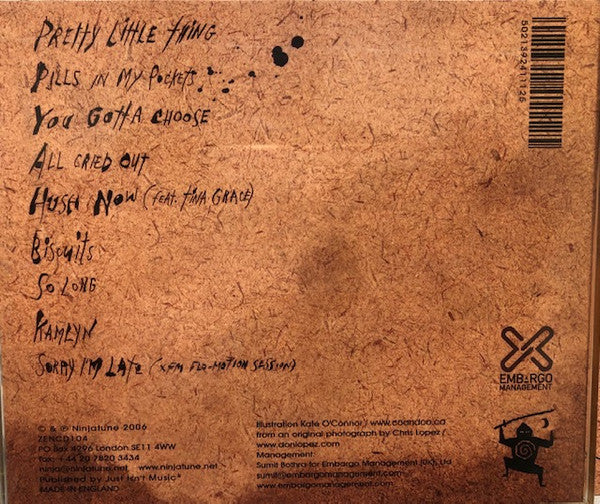 Pretty Little Thing
Pills in my Pockets
You Gotta Choose
All Cried Out
Hush Now (feat. Tina Grace)
Biscuits
So Long
Kamlyn
Sorry I'm Late (XFM Flo-Motion Session)
5021392411125
EMBARGO
MANAGEMENT
© & ℗ Ninjatune 2006
ZENCD104
PO Box 4296 London SE11 4WW
fax: +44 20 7820 3434
ninja@ninjatune.net www.ninjatune.net
Published by Just Isn't Music
MADE IN ENGLAND
Illustration Kate O'Connor /
from an original photograph by Chris Lopez /
www.donlopez.com
Management:
Sumit Bothra for Embargo Management (UK), Ltd
sumit@embargomanagement.com
www.embargomanagement.com